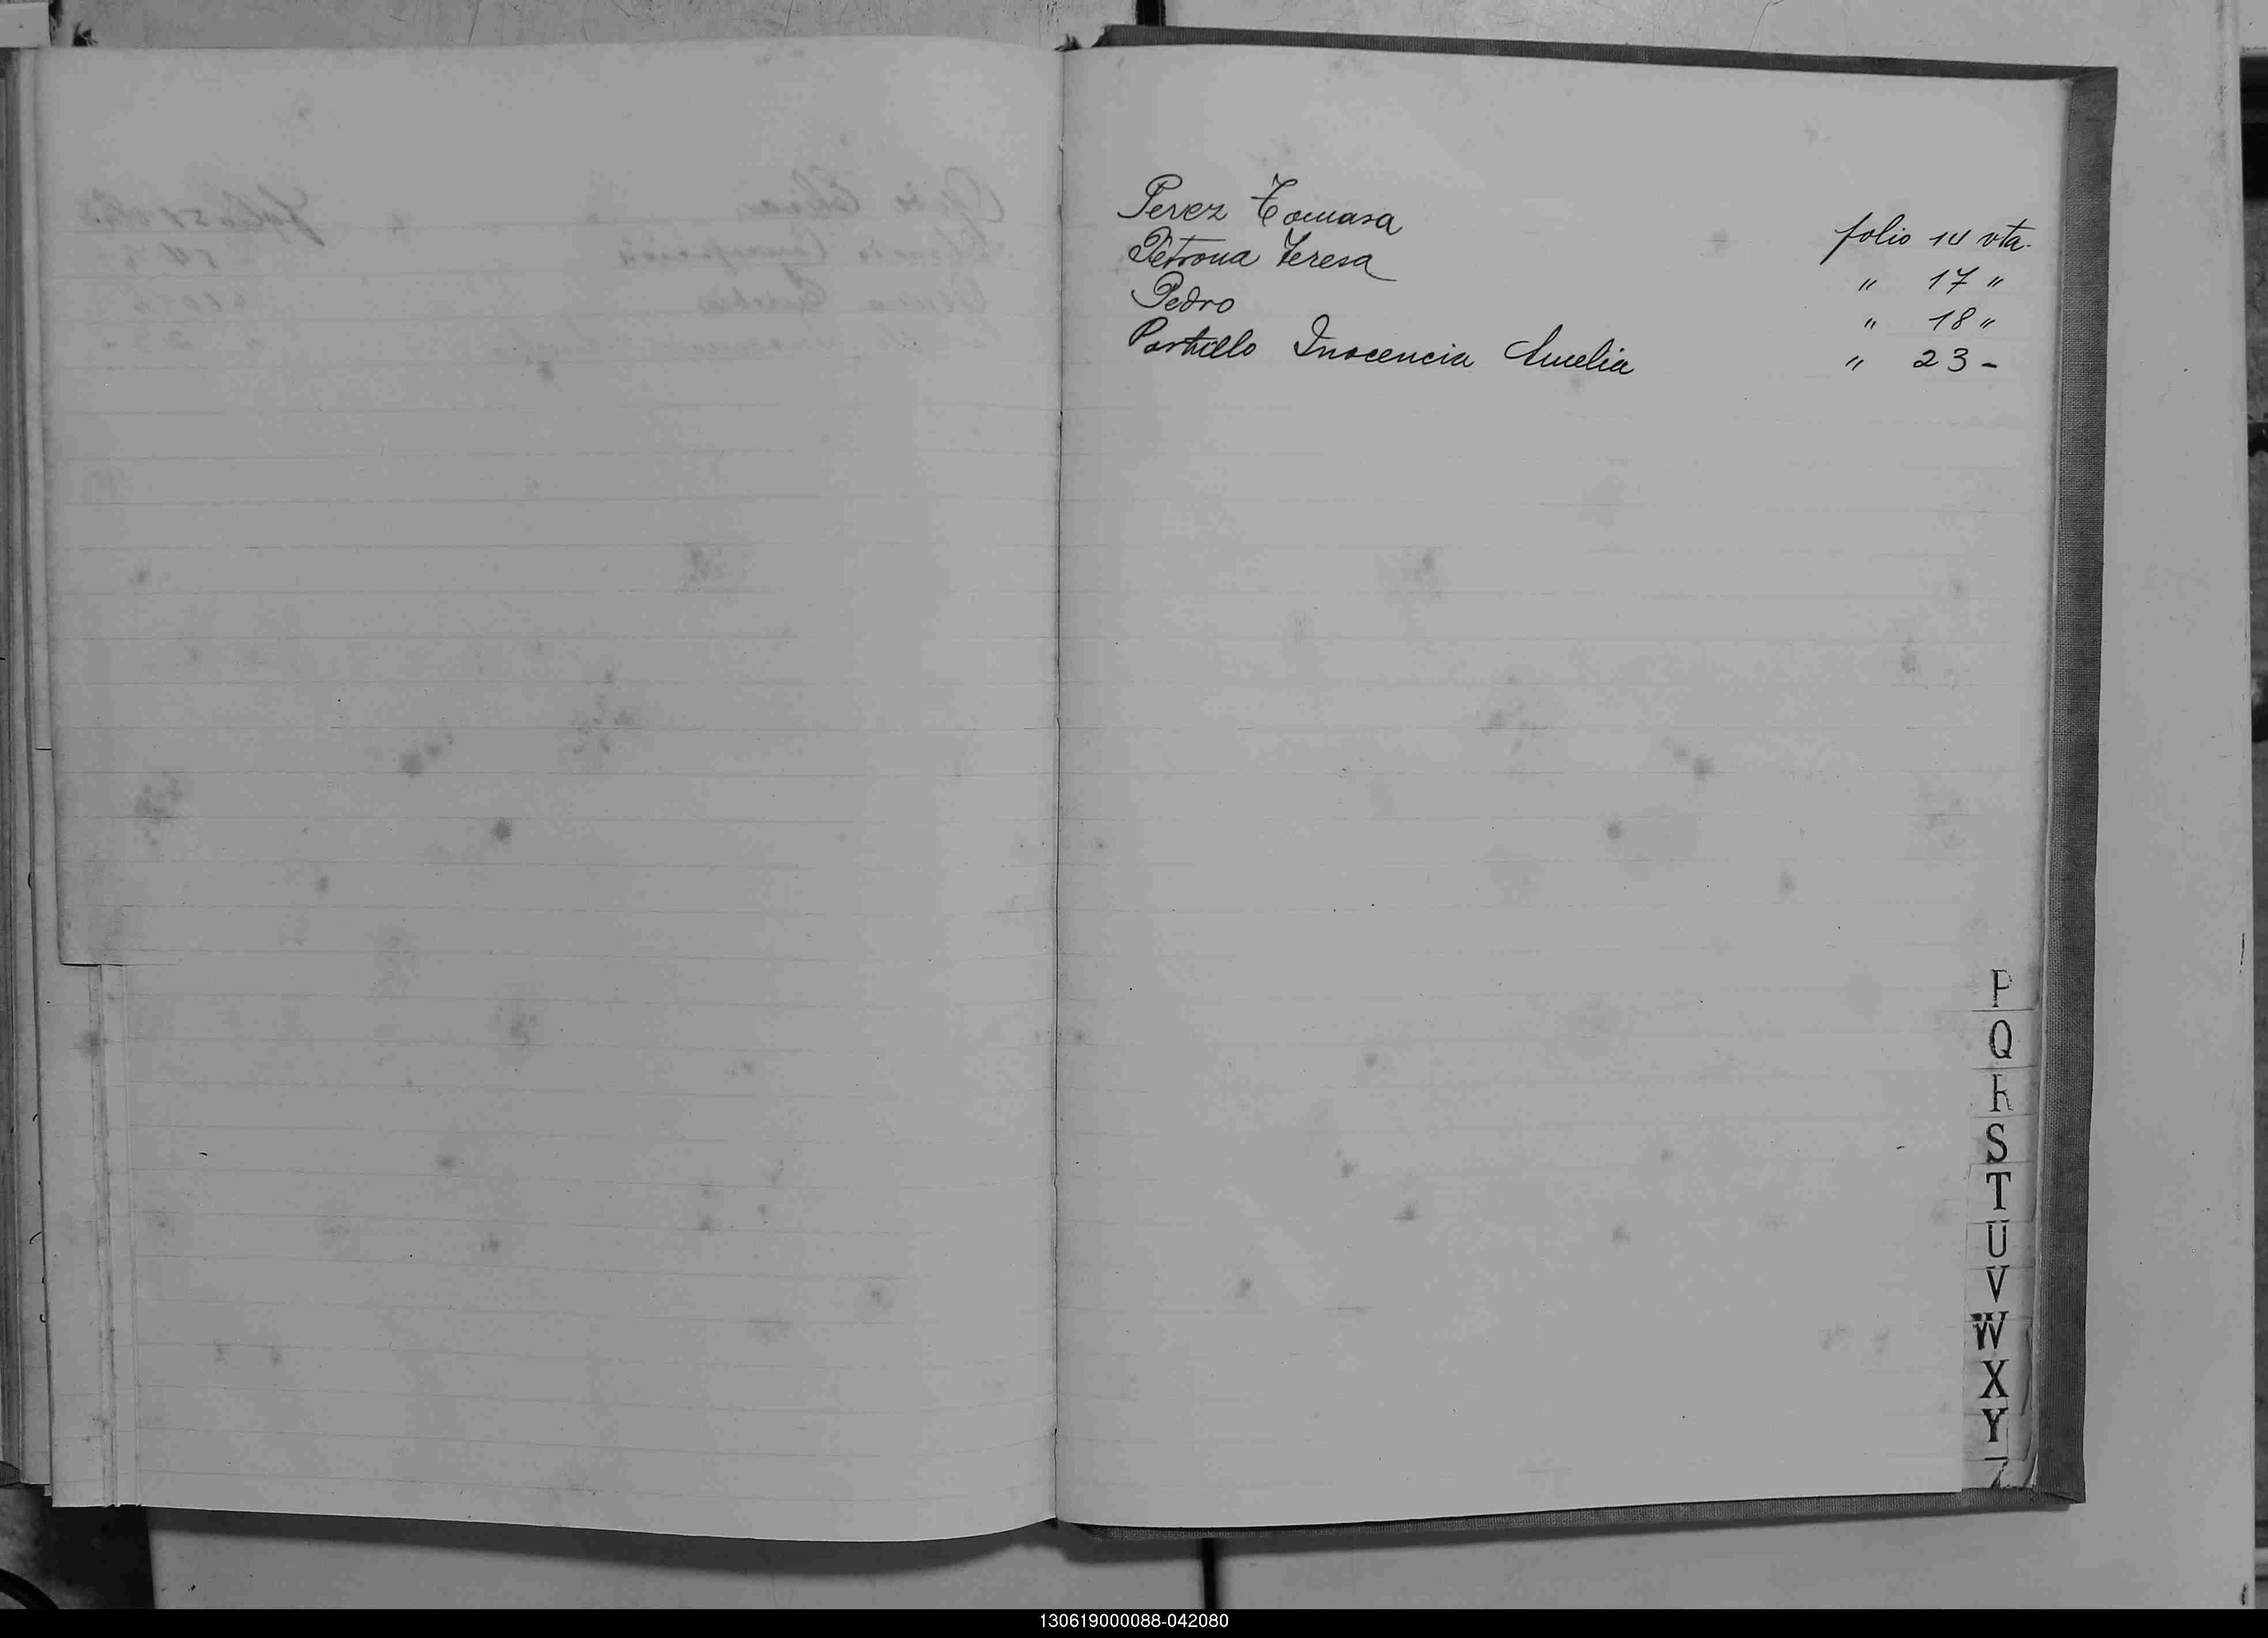 Perez Tomasa folio 14 vta.
Petrona Teresa " 17 "
Pedro " 18 "
Portillo Inocencia Amelia " 23 -
P
Q
R
S
T
U
V
W
X
Y
Z
130619000088-042080